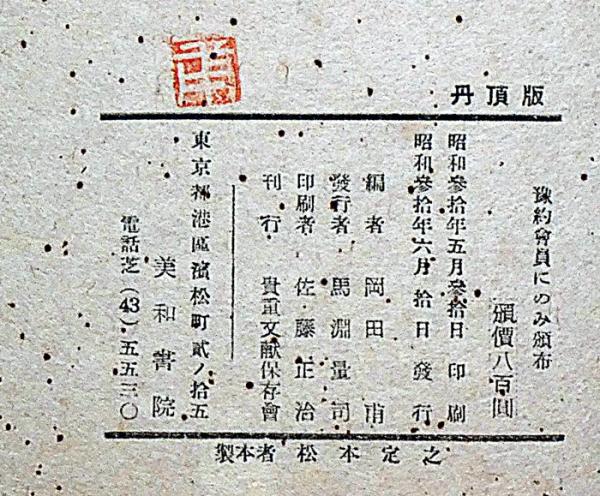 丹頂版
豫約會員にのみ頒布
頒價八百圓
昭和參拾年五月參拾日 印刷
昭和參拾年六月 拾日 發行
編者 岡田 甫
發行者 馬淵量司
印刷者 佐藤正治
刊行 貴重文献保存會
東京都港區濱松町貳ノ拾五
美和書院
電話芝(43)五五三〇
製本者 松本定之